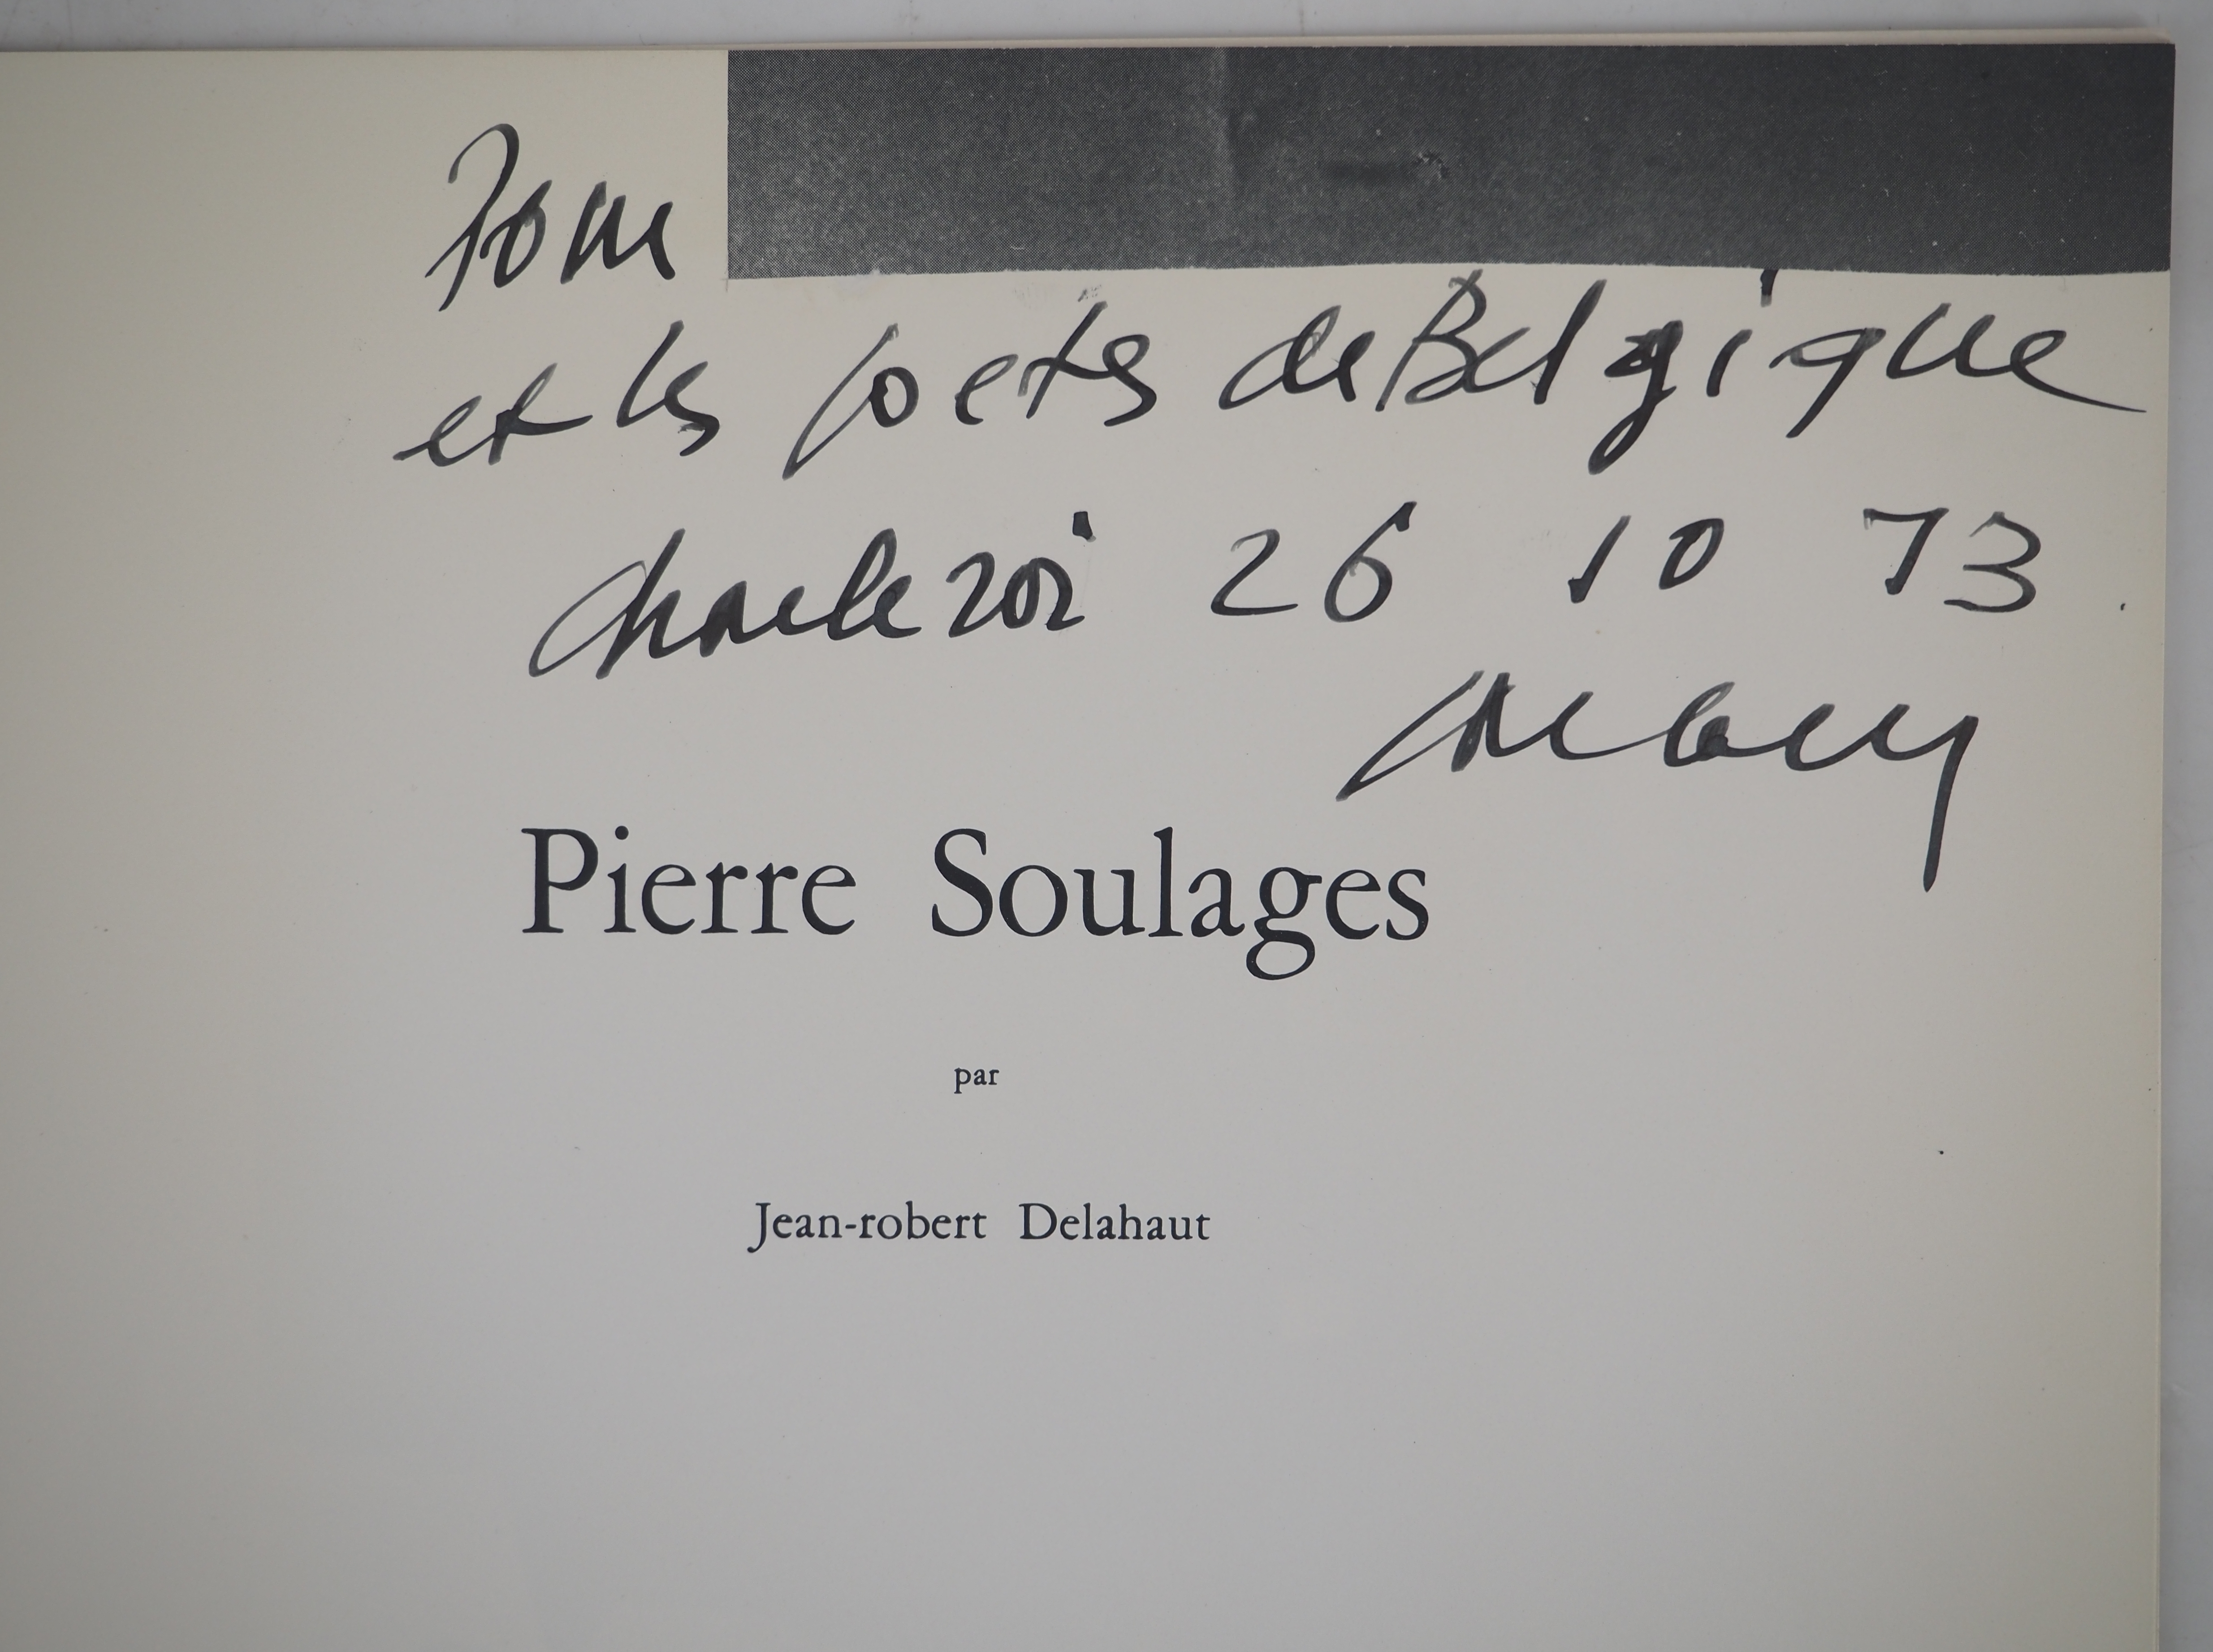 Pour
et les poetes de Belgique
charleroi 26 10 73
Pierre Soulages
par
Jean-robert Delahaut